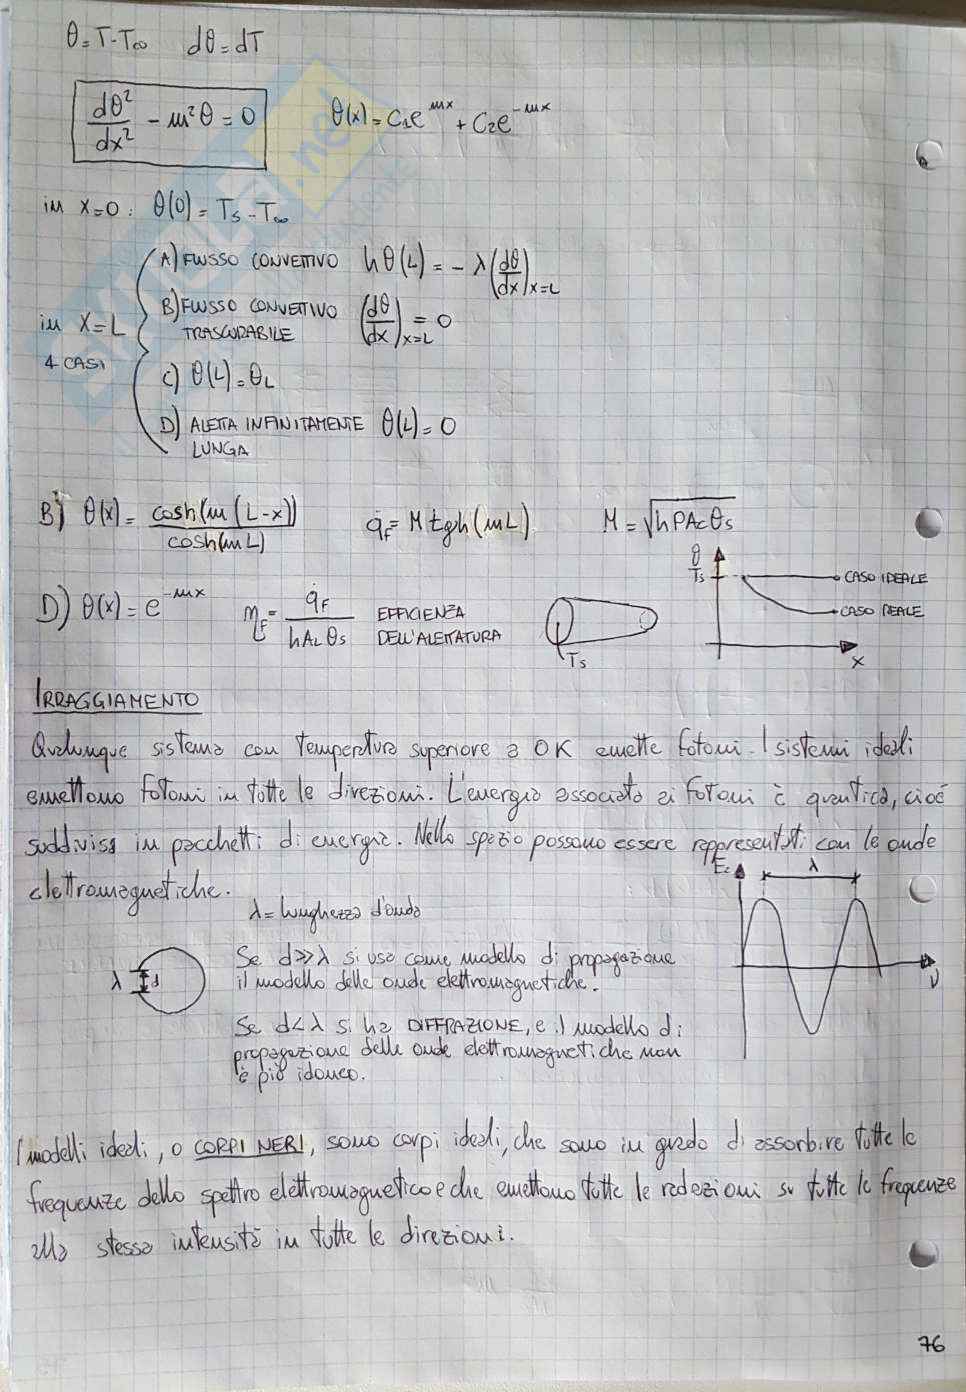 θ = T - T∞ dθ = dT
dθ²/dx² - m²θ = 0 θ(x) = C₁e^mx + C₂e^-mx
in x=0: θ(0) = Ts - T∞
A) FLUSSO CONVETTIVO hθ(L) = - λ(dθ/dx)x=L
in x=L
4 CASI
B) FLUSSO CONVETTIVO TRASCURABILE (dθ/dx)x=L = 0
C) θ(L) = θL
D) ALETTA INFINITAMENTE LUNGA θ(L) = 0
B) θ(x) = cosh(m(L-x))/cosh(mL) q̇F = M tgh(mL) M = √hPAcθs
D) θ(x) = e^-mx ηF = q̇F/hALθs EFFICIENZA
DELL'ALETTATURA
Ts
θ
Ts
CASO IDEALE
CASO REALE
x
IRRAGGIAMENTO
Qualunque sistema con temperatura superiore a 0K emette fotoni. I sistemi ideali
emettono fotoni in tutte le direzioni. L'energia associata ai fotoni è quantica, cioè
suddivisa in pacchetti di energia. Nello spazio possono essere rappresentati con le onde
elettromagnetiche.
λ = lunghezza d'onda
λ
ν
λ d
Se d>>λ si usa come modello di propagazione
il modello delle onde elettromagnetiche.
Se d<λ si ha DIFFRAZIONE, e il modello di
propagazione delle onde elettromagnetiche non
è più idoneo.
I modelli ideali, o CORPI NERI, sono corpi ideali, che sono in grado di assorbire tutte le
frequenze dello spettro elettromagnetico e che emettono tutte le radazioni su tutte le frequenze
alla stessa intensità in tutte le direzioni.
76